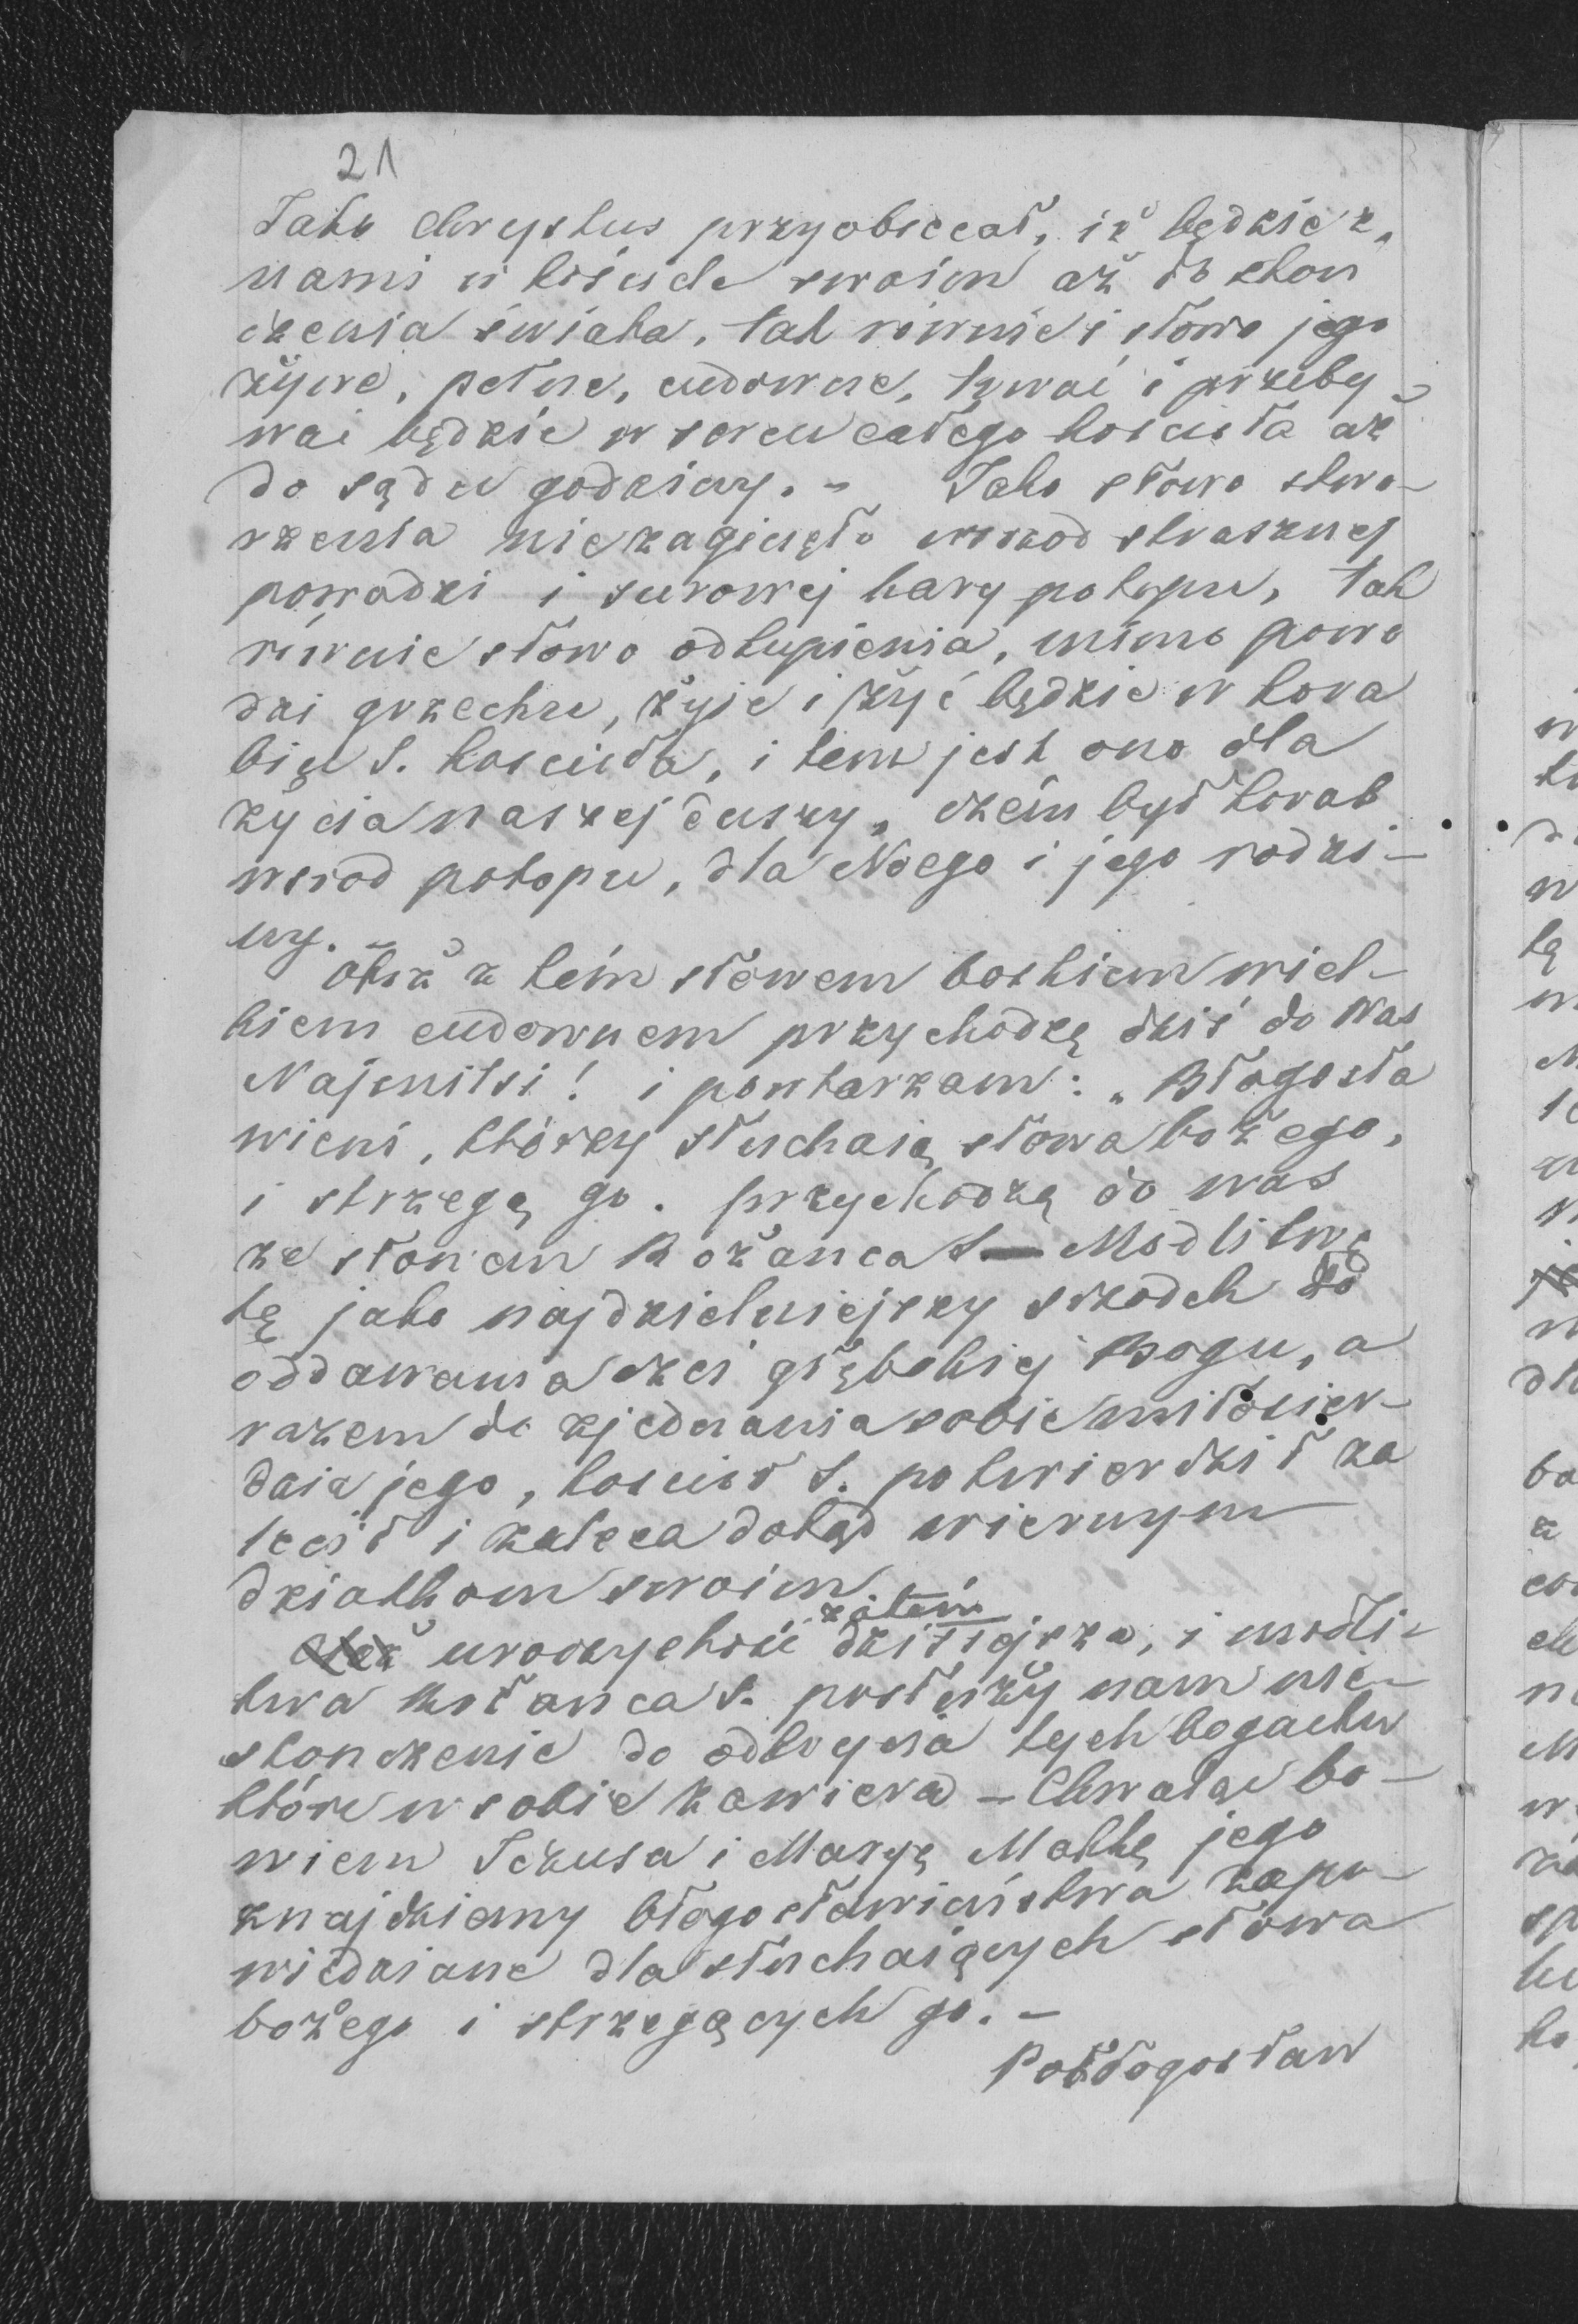 21
Jako Chrystus przyobiecał, iż będzie z
nami w kościele swoim aż do skoń
czenia świata, tak równie i słowo jego
żywe, pełne, cudowne, trwać i przeby-
wać będzie w sercu całego kościoła aż
do sądu godziny. - Jako słowo stwo-
rzenia nie zaginęło wśrod strasznej
powodzi i surowej kary potopu, tak
równie słowo odkupienia, mimo powo
dzi grzechu, żyje i żyć będzie w kora
biu S. kościoła, i tem jest ono dla
życia naszej duszy, czém był korab
wsrod potopu, dla Noego i jego rodzi-
ny. -
Otóż z tém słowem boskiem wiel-
kiem cudownem przychodzę dziś do Was
Najmilsi! i powtarzam: „Błogosła
wieni, którzy słuchają słowa bożego,
i strzegą go. przychodzę do was
ze słowem Rożanca S — Modlitwę
tę jako najdzielniejszy srzodek do
oddawania czci głębokiej Bogu, a
razem do zjednania sobie miłosier-
dzia jego, kościoł S. potwierdził za
lecił i zaleca dotąd wiernym
dziatkom swoim.
zatém
uroczystość dzisiejsza, i modli-
twa Rożanca S. posłuży nam nie-
skonczenie do odkrycia tych bogactw
które w sobie zawiera - Chwaląc bo-
wiem Jezusa i Maryę Matkę jego
znajdziemy błogosławieństwa zapo-
wiedziane dla słuchaiących słowa
bożego i strzegących go. -
Pobłogosław